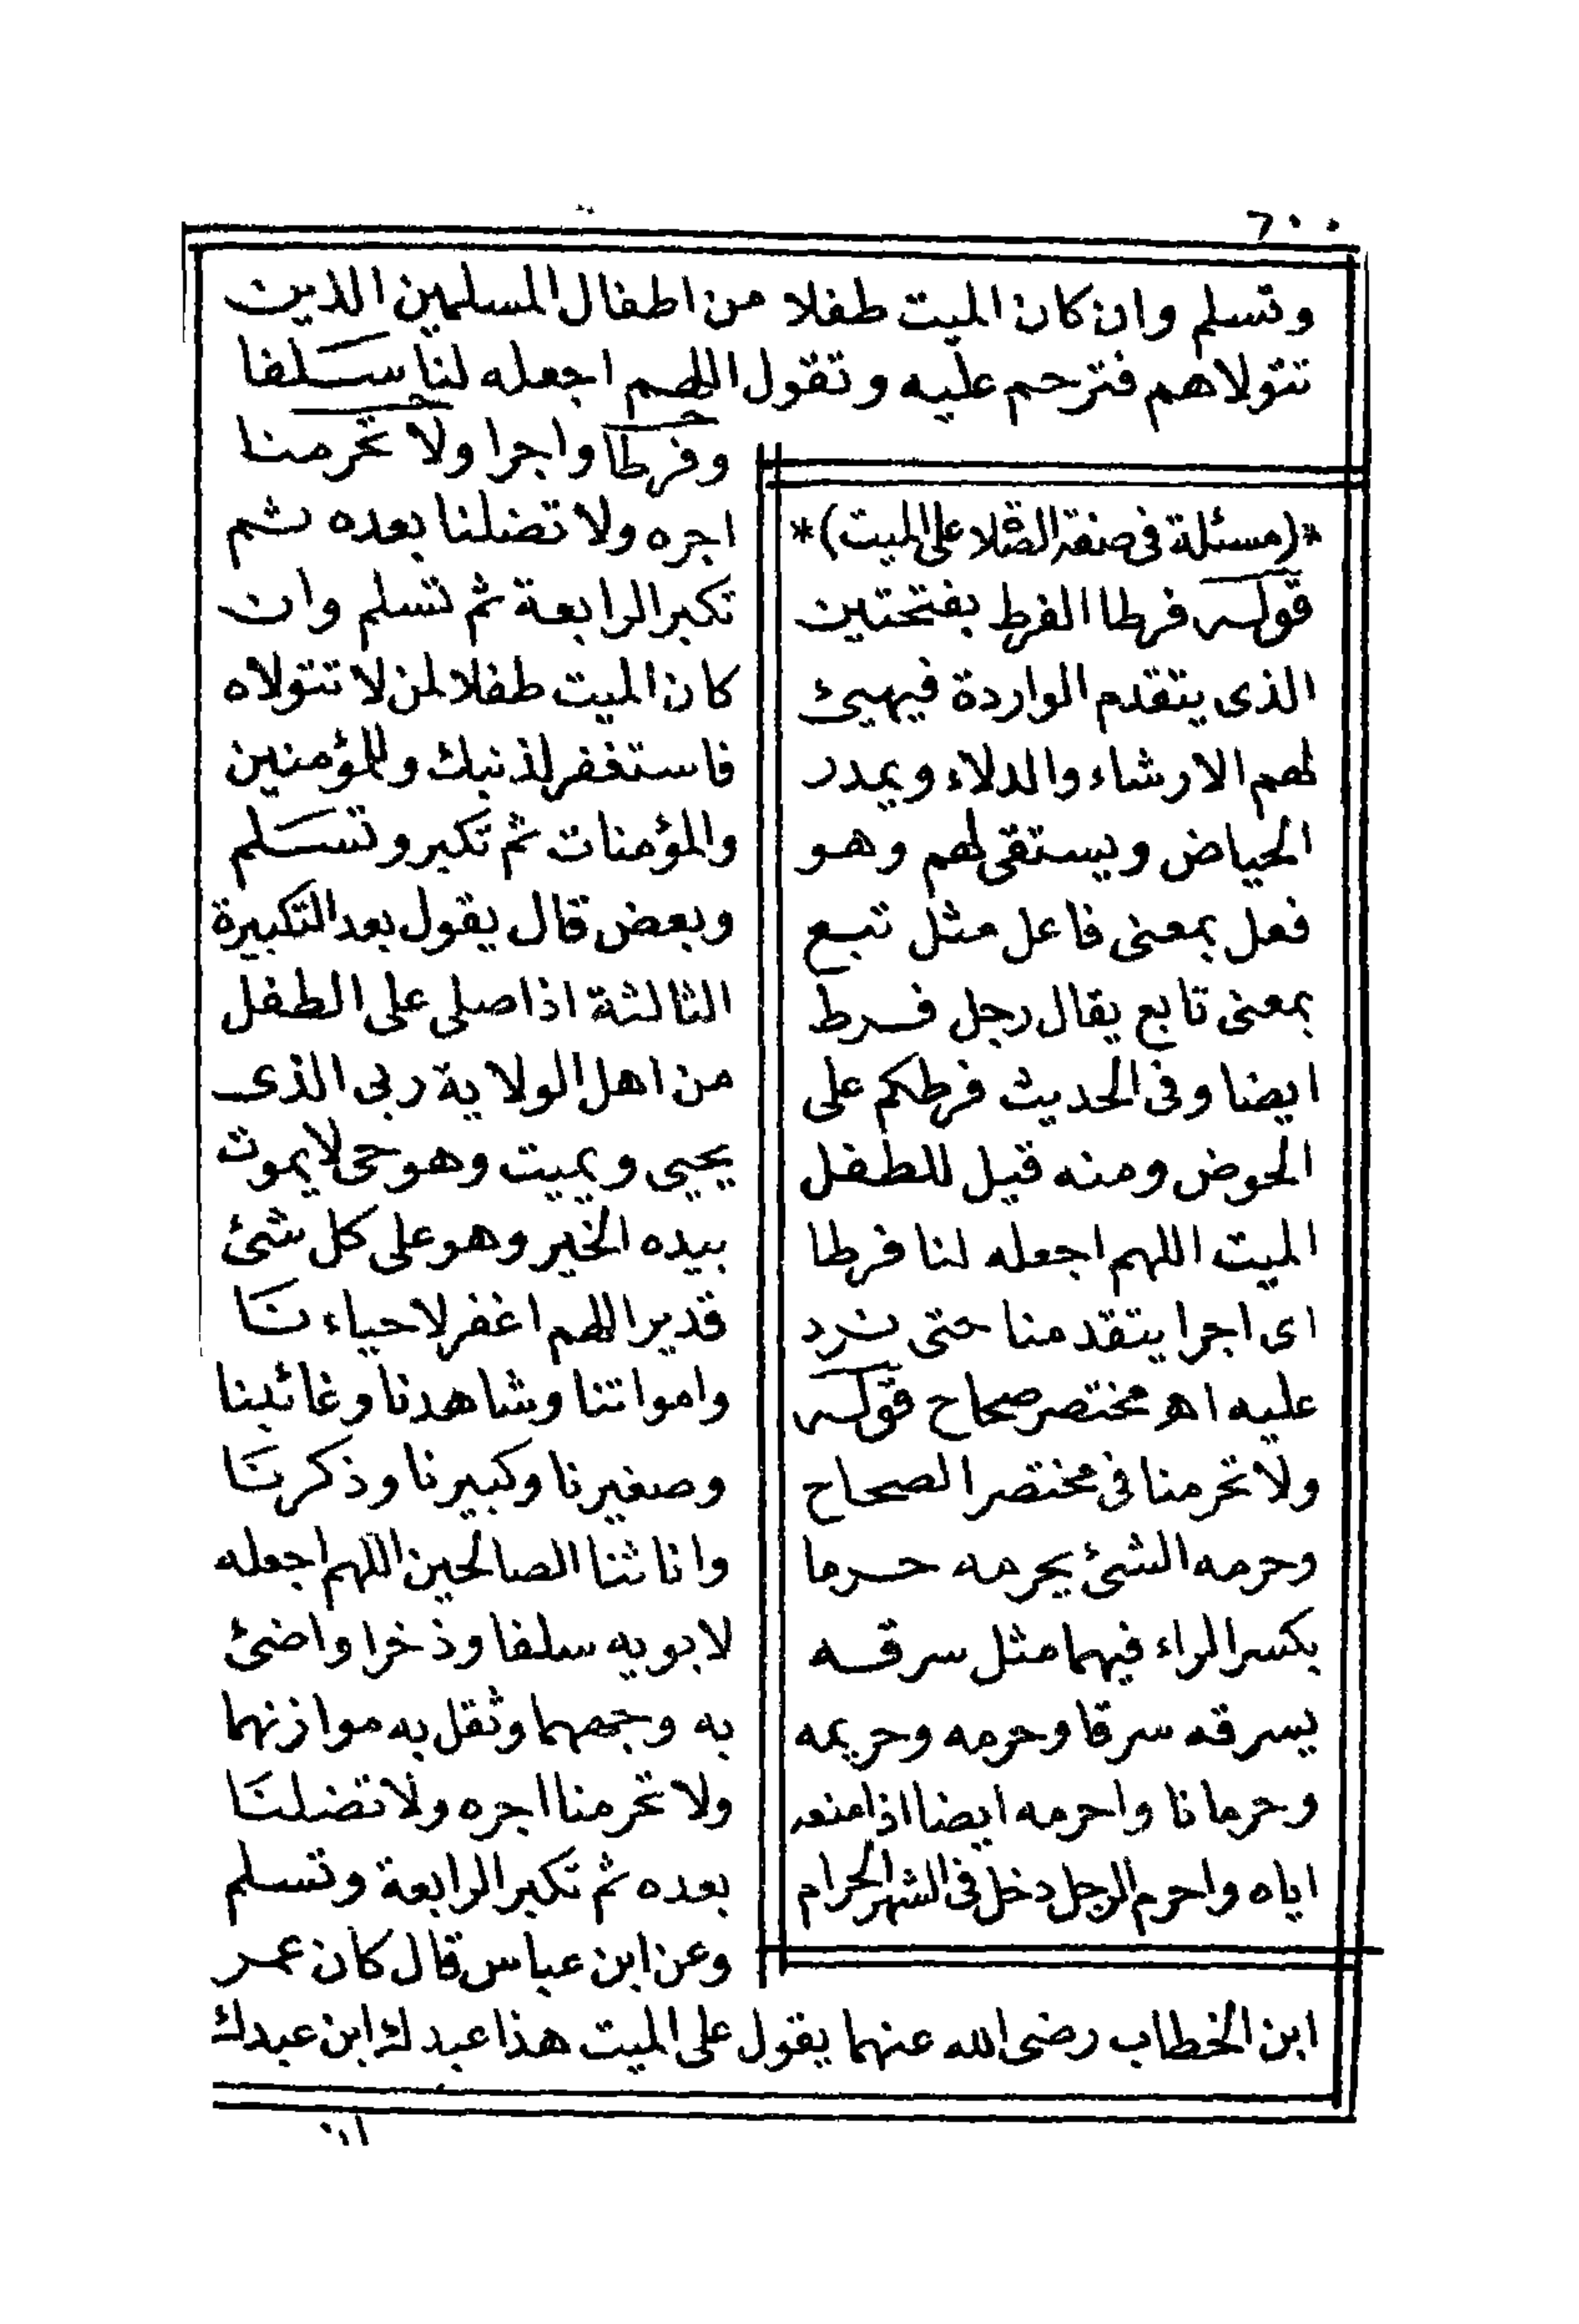 ٦٠٠
وتسلم وان كان الميت طفلا من اطفال المسلمين الذين
تتولاهم فترحم عليه وتقول اللهم اجعله لنا سلفا
وفرطا واجرا ولا تحرمنا
اجره ولا تضلنا بعده ثم
تكبر الرابعة ثم تسلم وان
كان الميت طفلا لمن لا تتولاه
فاستغفر لذنبك وللمؤمنين
والمؤمنات ثم تكبر وتسلم
وبعض قال يقول بعد التكبيرة
الثالثة اذا صلى على الطفل
من اهل الولاية ربى الذى
يحيى ويميت وهو حى لا يموت
بيده الخير وهو على كل شئ
قدير اللهم اغفر لاحياءنا
وامواتنا وشاهدنا وغائبنا
وصغيرنا وكبيرنا وذكرنا
واناثنا الصالحين اللهم اجعله
لابويه سلفا وذخرا واضئ
به وجههما وثقل به موازنهما
ولا تحرمنا اجره ولا تضلنا
بعده ثم تكبر الرابعة وتسلم
وعن ابن عباس قال كان عمر
*(مسئلة فى صفة الصلاة على الميت)*
قوله فرطا الفرط بفتحتين
الذى يتقدم الواردة فيهيئ
لهم الارشاء والدلاء ويمدر
الحياض ويستقى لهم وهو
فعل بمعنى فاعل مثل تبع
بمعنى تابع يقال رجل فرط
ايضا وفى الحديث فرطكم على
الحوض ومنه قيل للطفل
الميت اللهم اجعله لنا فرطا
اى اجرا يتقدمنا حتى نرد
عليه اهـ مختصر صحاح قوله
ولا تحرمنا فى مختصر الصحاح
وحرمه الشئ يحرمه حرما
بكسر الراء فيهما مثل سرقه
يسرقه سرقا وحرمه وحريمه
وحرمانا واحرمه ايضا اذا منعه
اياه واحرم الرجل دخل فى الشهر الحرام
ابن الخطاب رضى الله عنهما يقول على الميت هذا عبدك ابن عبدك